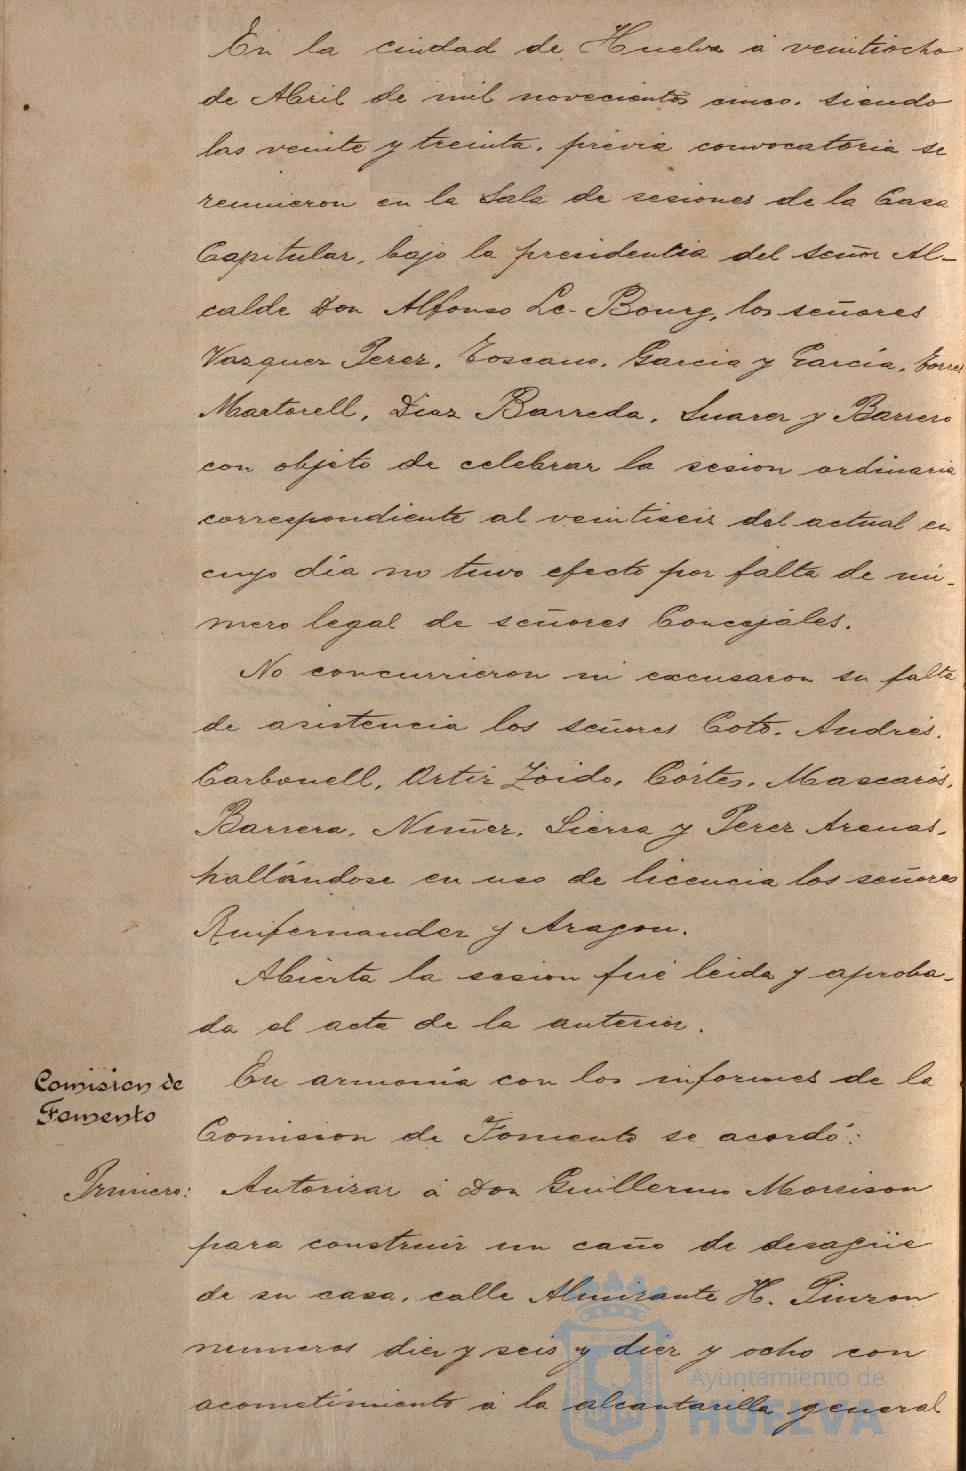 En la ciudad de Huelva á veintiocho
de Abril de mil novecientos cinco. siendo
las veinte y treinta. prévia convocatoria se
reunieron en la Sala de sesiones de la Casa
Capitular, bajo la presidencia del señor Al-
calde Don Alfonso Le-Bourg, los señores
Vazquez Perez. Toscano. Garcia y García. Torres
Martorell. Diaz Barreda. Suarez y Barrero
con objeto de celebrar la sesion ordinaria
correspondiente al veintiseis del actual en
cuyo día no tuvo efecto por falta de nú-
mero legal de señores Concejáles.
No concurrieron ni excusaron su falta
de asistencia los señores Coto. Andrés.
Carbonell. Ortiz Zoido. Córtes. Mascarós.
Barrera. Nuñez. Sierra y Perez Arenas.
hallándose en uso de licencia los señores
Ruifernandez y Aragon.
Abierta la sesion fué leida y aproba-
da el acta de la anterior.
Comision de
Fomento
En armonía con los informes de la
Comision de Fomento se acordó:
Primero: Autorizar á Don Guillermo Morrison
para construir un caño de desagüe
de su casa, calle Almirante H. Pinzon
numeros diez y seis y diez y ocho con
acometimiento á la alcantarilla general
Ayuntamiento de
HUELVA